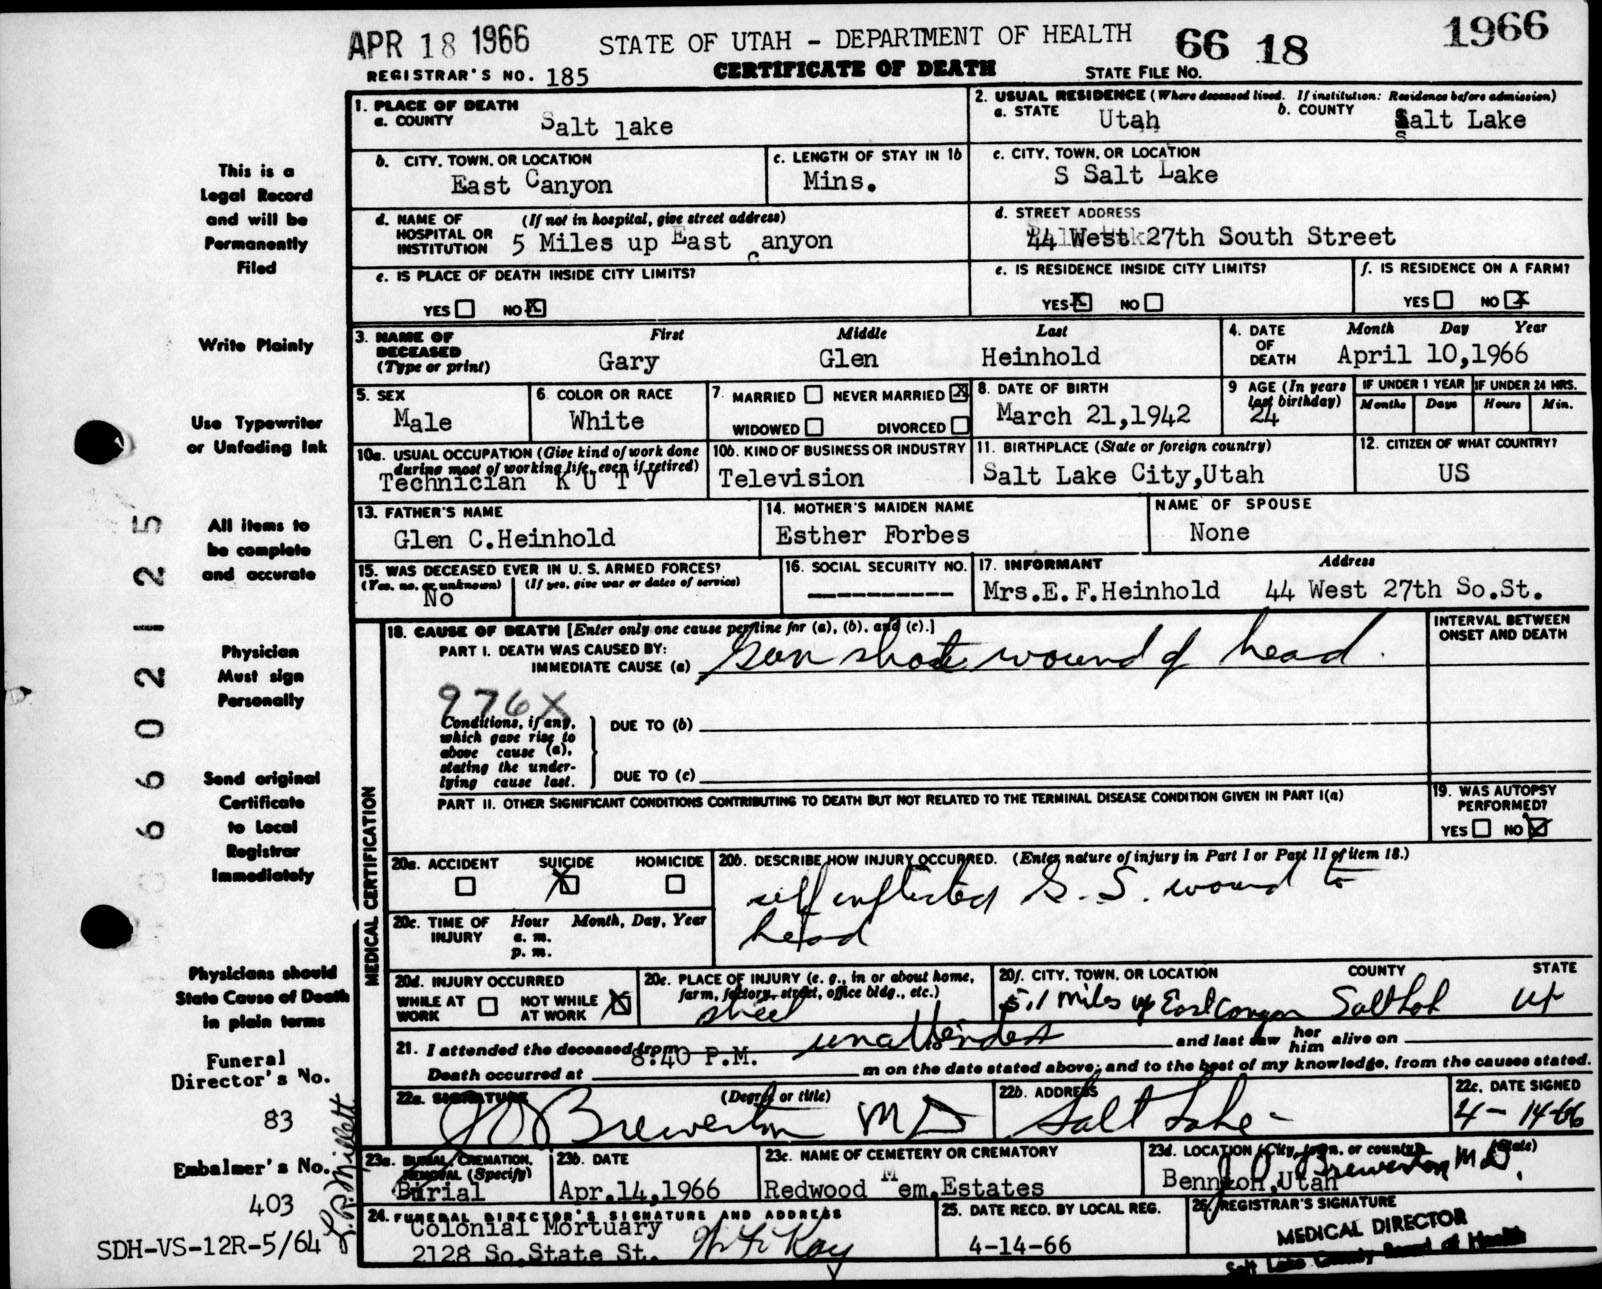 APR 18 1966 STATE OF UTAH - DEPARTMENT OF HEALTH 66 18 1966
REGISTRAR'S NO. 185 CERTIFICATE OF DEATH STATE FILE NO.
1. PLACE OF DEATH
a. COUNTY Salt lake
2. USUAL RESIDENCE (Where deceased lived. If institution: Residence before admission)
a. STATE Utah b. COUNTY Salt Lake
b. CITY, TOWN, OR LOCATION East Canyon
c. LENGTH OF STAY IN 1b Mins.
c. CITY, TOWN, OR LOCATION S Salt Lake
d. NAME OF HOSPITAL OR INSTITUTION (If not in hospital, give street address) 5 Miles up East Canyon
d. STREET ADDRESS 44 West 27th South Street
e. IS PLACE OF DEATH INSIDE CITY LIMITS?
YES NO X
e. IS RESIDENCE INSIDE CITY LIMITS?
YES X NO
f. IS RESIDENCE ON A FARM?
YES NO X
3. NAME OF DECEASED (Type or print) First Middle Last
Gary Glen Heinhold
4. DATE OF DEATH Month Day Year
April 10,1966
5. SEX Male
6. COLOR OR RACE White
7. MARRIED NEVER MARRIED X
WIDOWED DIVORCED
8. DATE OF BIRTH March 21,1942
9 AGE (In years last birthday) 24
IF UNDER 1 YEAR Months Days
IF UNDER 24 HRS. Hours Min.
10a. USUAL OCCUPATION (Give kind of work done during most of working life, even if retired)
Technician K U T V
10b. KIND OF BUSINESS OR INDUSTRY Television
11. BIRTHPLACE (State or foreign country) Salt Lake City,Utah
12. CITIZEN OF WHAT COUNTRY? US
13. FATHER'S NAME Glen C.Heinhold
14. MOTHER'S MAIDEN NAME Esther Forbes
NAME OF SPOUSE None
15. WAS DECEASED EVER IN U. S. ARMED FORCES?
(Yes, no, or unknown) (If yes, give war or dates of service)
No
16. SOCIAL SECURITY NO. ----------
17. INFORMANT Address
Mrs.E.F.Heinhold 44 West 27th So.St.
MEDICAL CERTIFICATION
18. CAUSE OF DEATH [Enter only one cause per line for (a), (b), and (c).]
INTERVAL BETWEEN ONSET AND DEATH
PART I. DEATH WAS CAUSED BY:
IMMEDIATE CAUSE (a) Gun shot wound of head.
976X
Conditions, if any, which gave rise to above cause (a), stating the underlying cause last.
DUE TO (b)
DUE TO (c)
PART II. OTHER SIGNIFICANT CONDITIONS CONTRIBUTING TO DEATH BUT NOT RELATED TO THE TERMINAL DISEASE CONDITION GIVEN IN PART I(a)
19. WAS AUTOPSY PERFORMED?
YES NO X
20a. ACCIDENT SUICIDE HOMICIDE
X
20b. DESCRIBE HOW INJURY OCCURRED. (Enter nature of injury in Part I or Part II of item 18.)
self inflicted G. S. wound to
head
20c. TIME OF INJURY Hour Month, Day, Year
a. m.
p. m.
20d. INJURY OCCURRED
WHILE AT WORK NOT WHILE AT WORK X
20e. PLACE OF INJURY (e. g., in or about home, farm, factory, street, office bldg., etc.)
street
20f. CITY, TOWN, OR LOCATION COUNTY STATE
5.1 miles up East Canyon Salt Lak Ut
21. I attended the deceased from unattended to and last saw her him alive on
Death occurred at 8:40 P.M. m on the date stated above; and to the best of my knowledge, from the causes stated.
22a. SIGNATURE (Degree or title)
Brewerton MD
22b. ADDRESS Salt Lake -
22c. DATE SIGNED 4-14-66
23a. BURIAL, CREMATION, REMOVAL (Specify) Burial
23b. DATE Apr.14,1966
23c. NAME OF CEMETERY OR CREMATORY Redwood Mem.Estates
23d. LOCATION (City, town, or county) (State)
Bennion,Utah
24. FUNERAL DIRECTOR'S SIGNATURE AND ADDRESS
Colonial Mortuary
2128 So.State St.
25. DATE RECD. BY LOCAL REG. 4-14-66
26. REGISTRAR'S SIGNATURE
Brewerton M.D.
MEDICAL DIRECTOR
Salt Lake County Board of Health
This is a
Legal Record
and will be
Permanently
Filed
Write Plainly
Use Typewriter
or Unfading Ink
All items to
be complete
and accurate
Physician
Must sign
Personally
Send original
Certificate
to Local
Registrar
Immediately
Physicians should
State Cause of Death
in plain terms
Funeral
Director's No.
83
Embalmer's No.
403
SDH-VS-12R-5/64
66021225